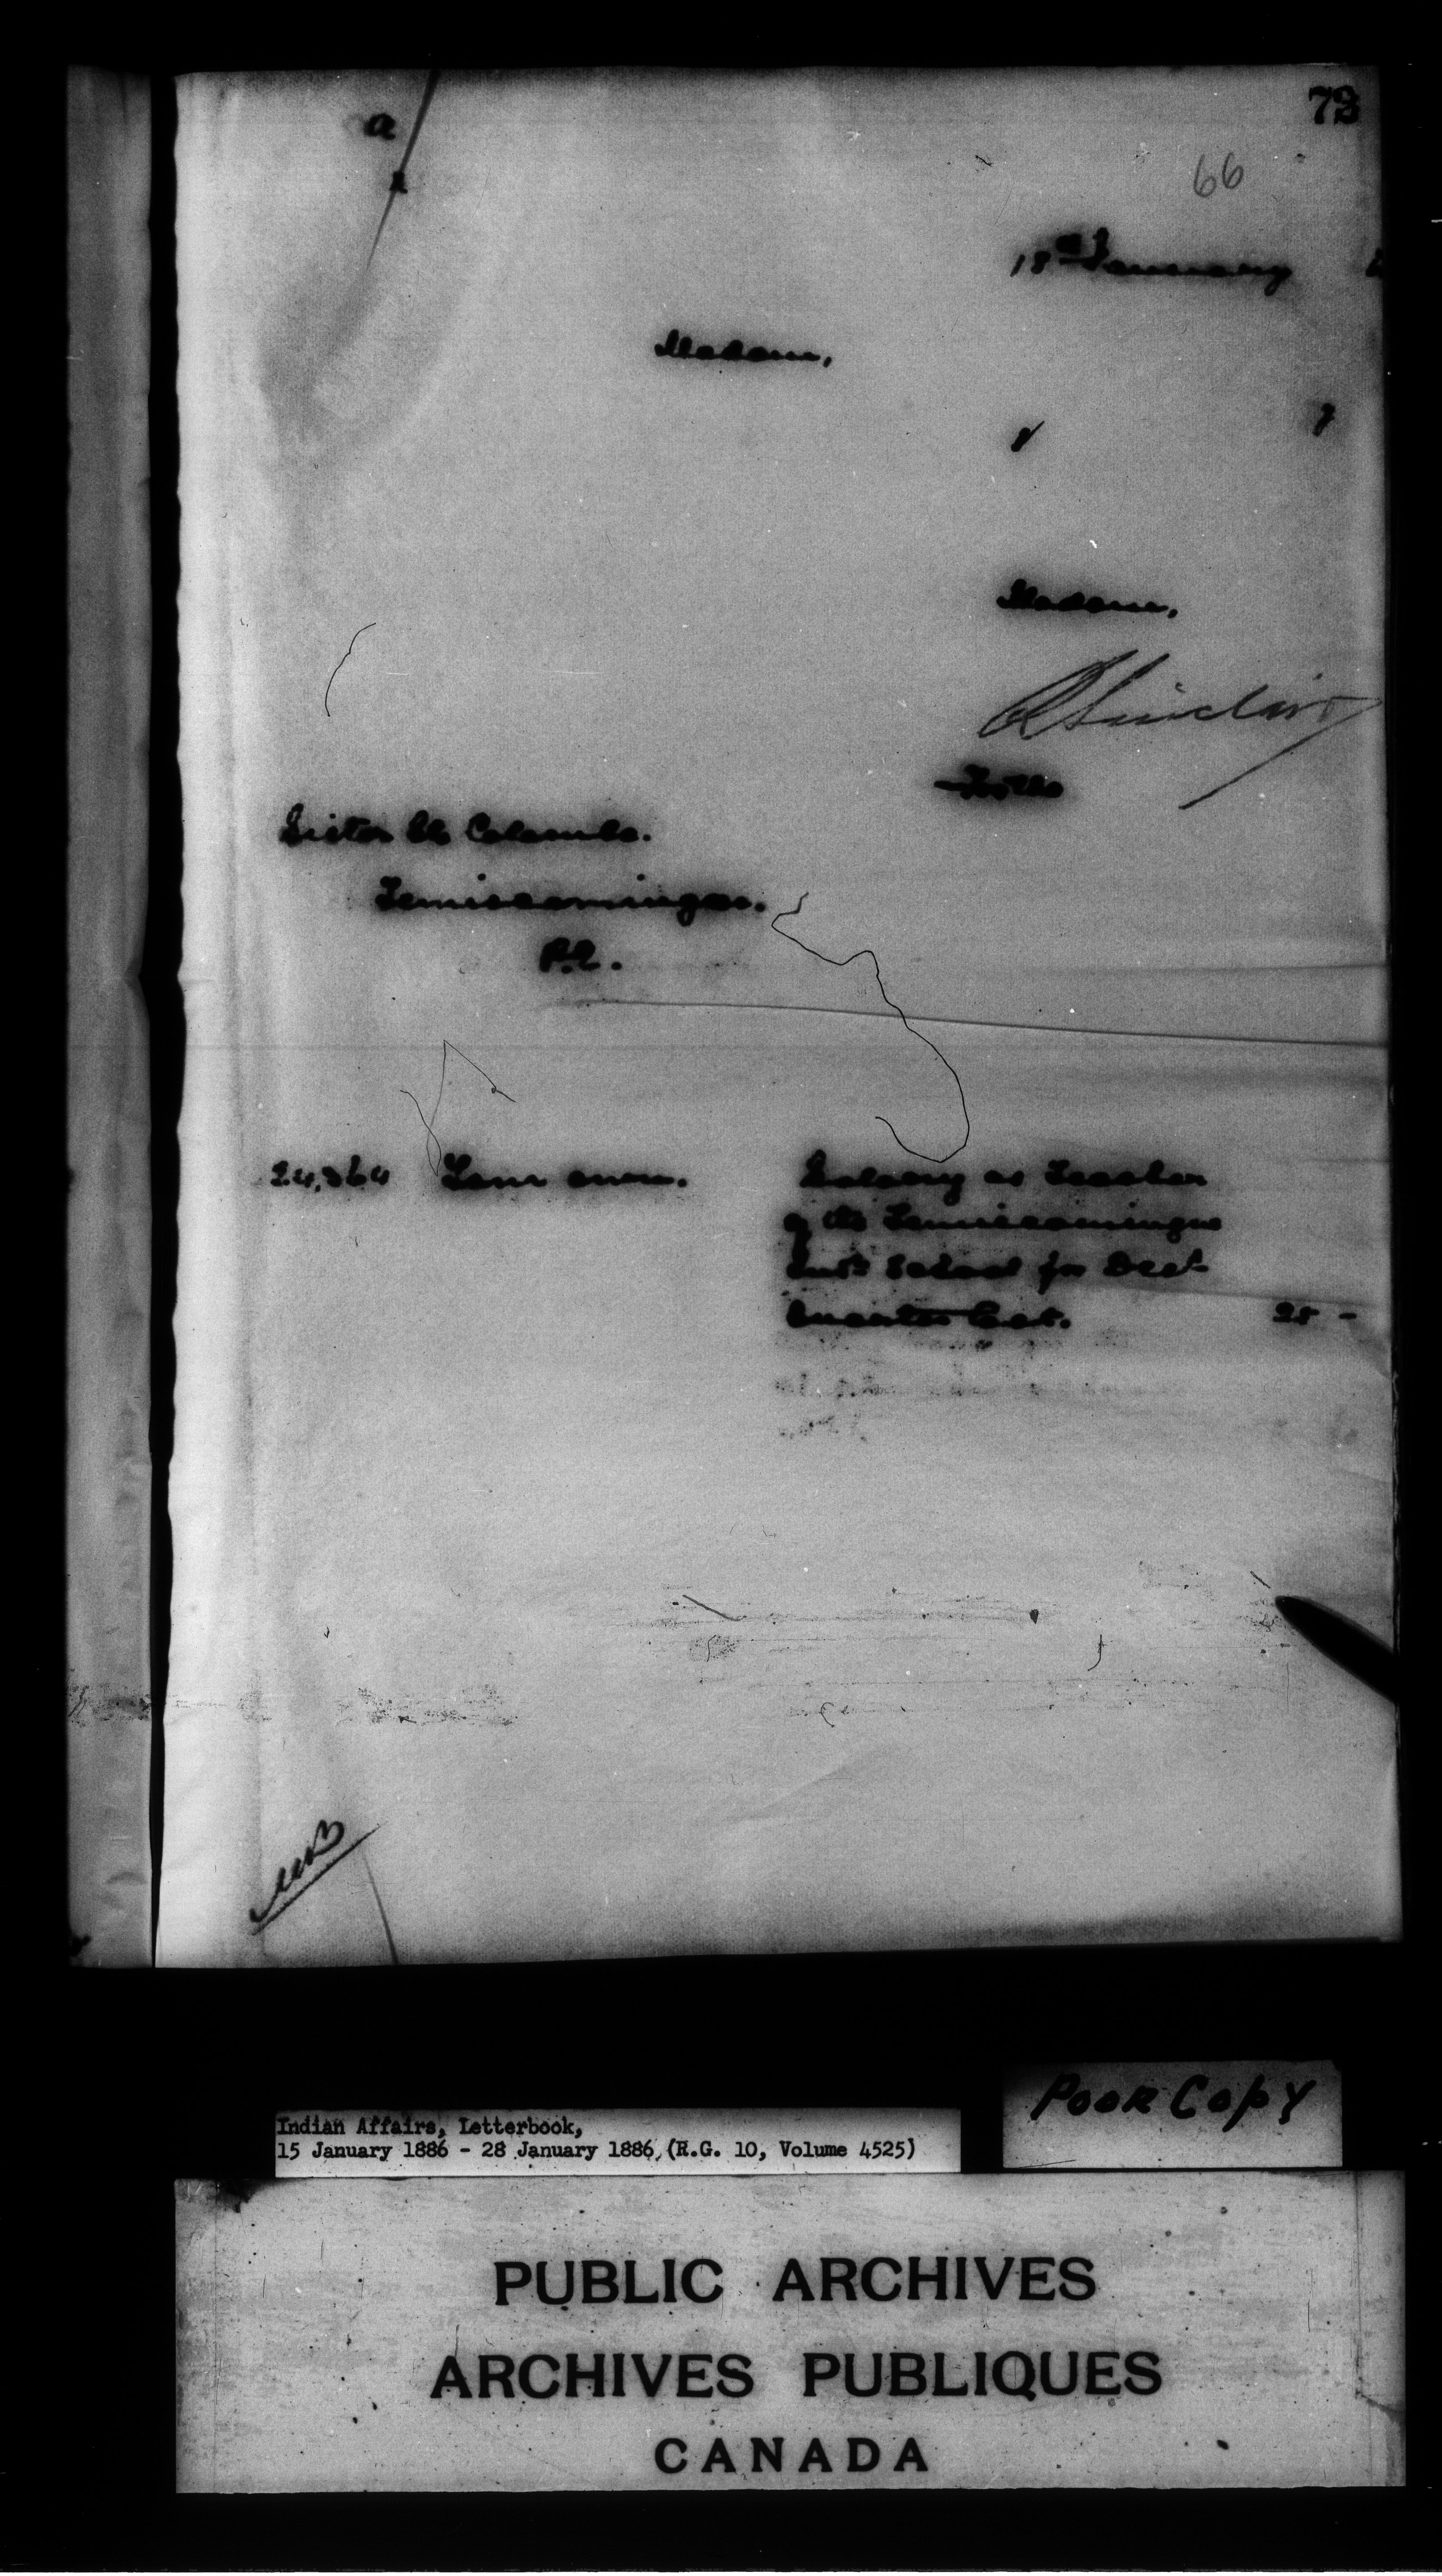 a
73
66
18th January 6
Madam,
Madam,
R Sinclair
For the
Sister St Colombe.
Temiscamingue.
P.Q.
24,364 Your own. Salary as Teacher
of the Temiscamingue
Ind. School for Dect
Quarter last. 25 -
MB
Poor Copy
Indian Affairs, Letterbook,
15 January 1886 - 28 January 1886 (R.G. 10, Volume 4525)
PUBLIC ARCHIVES
ARCHIVES PUBLIQUES
CANADA